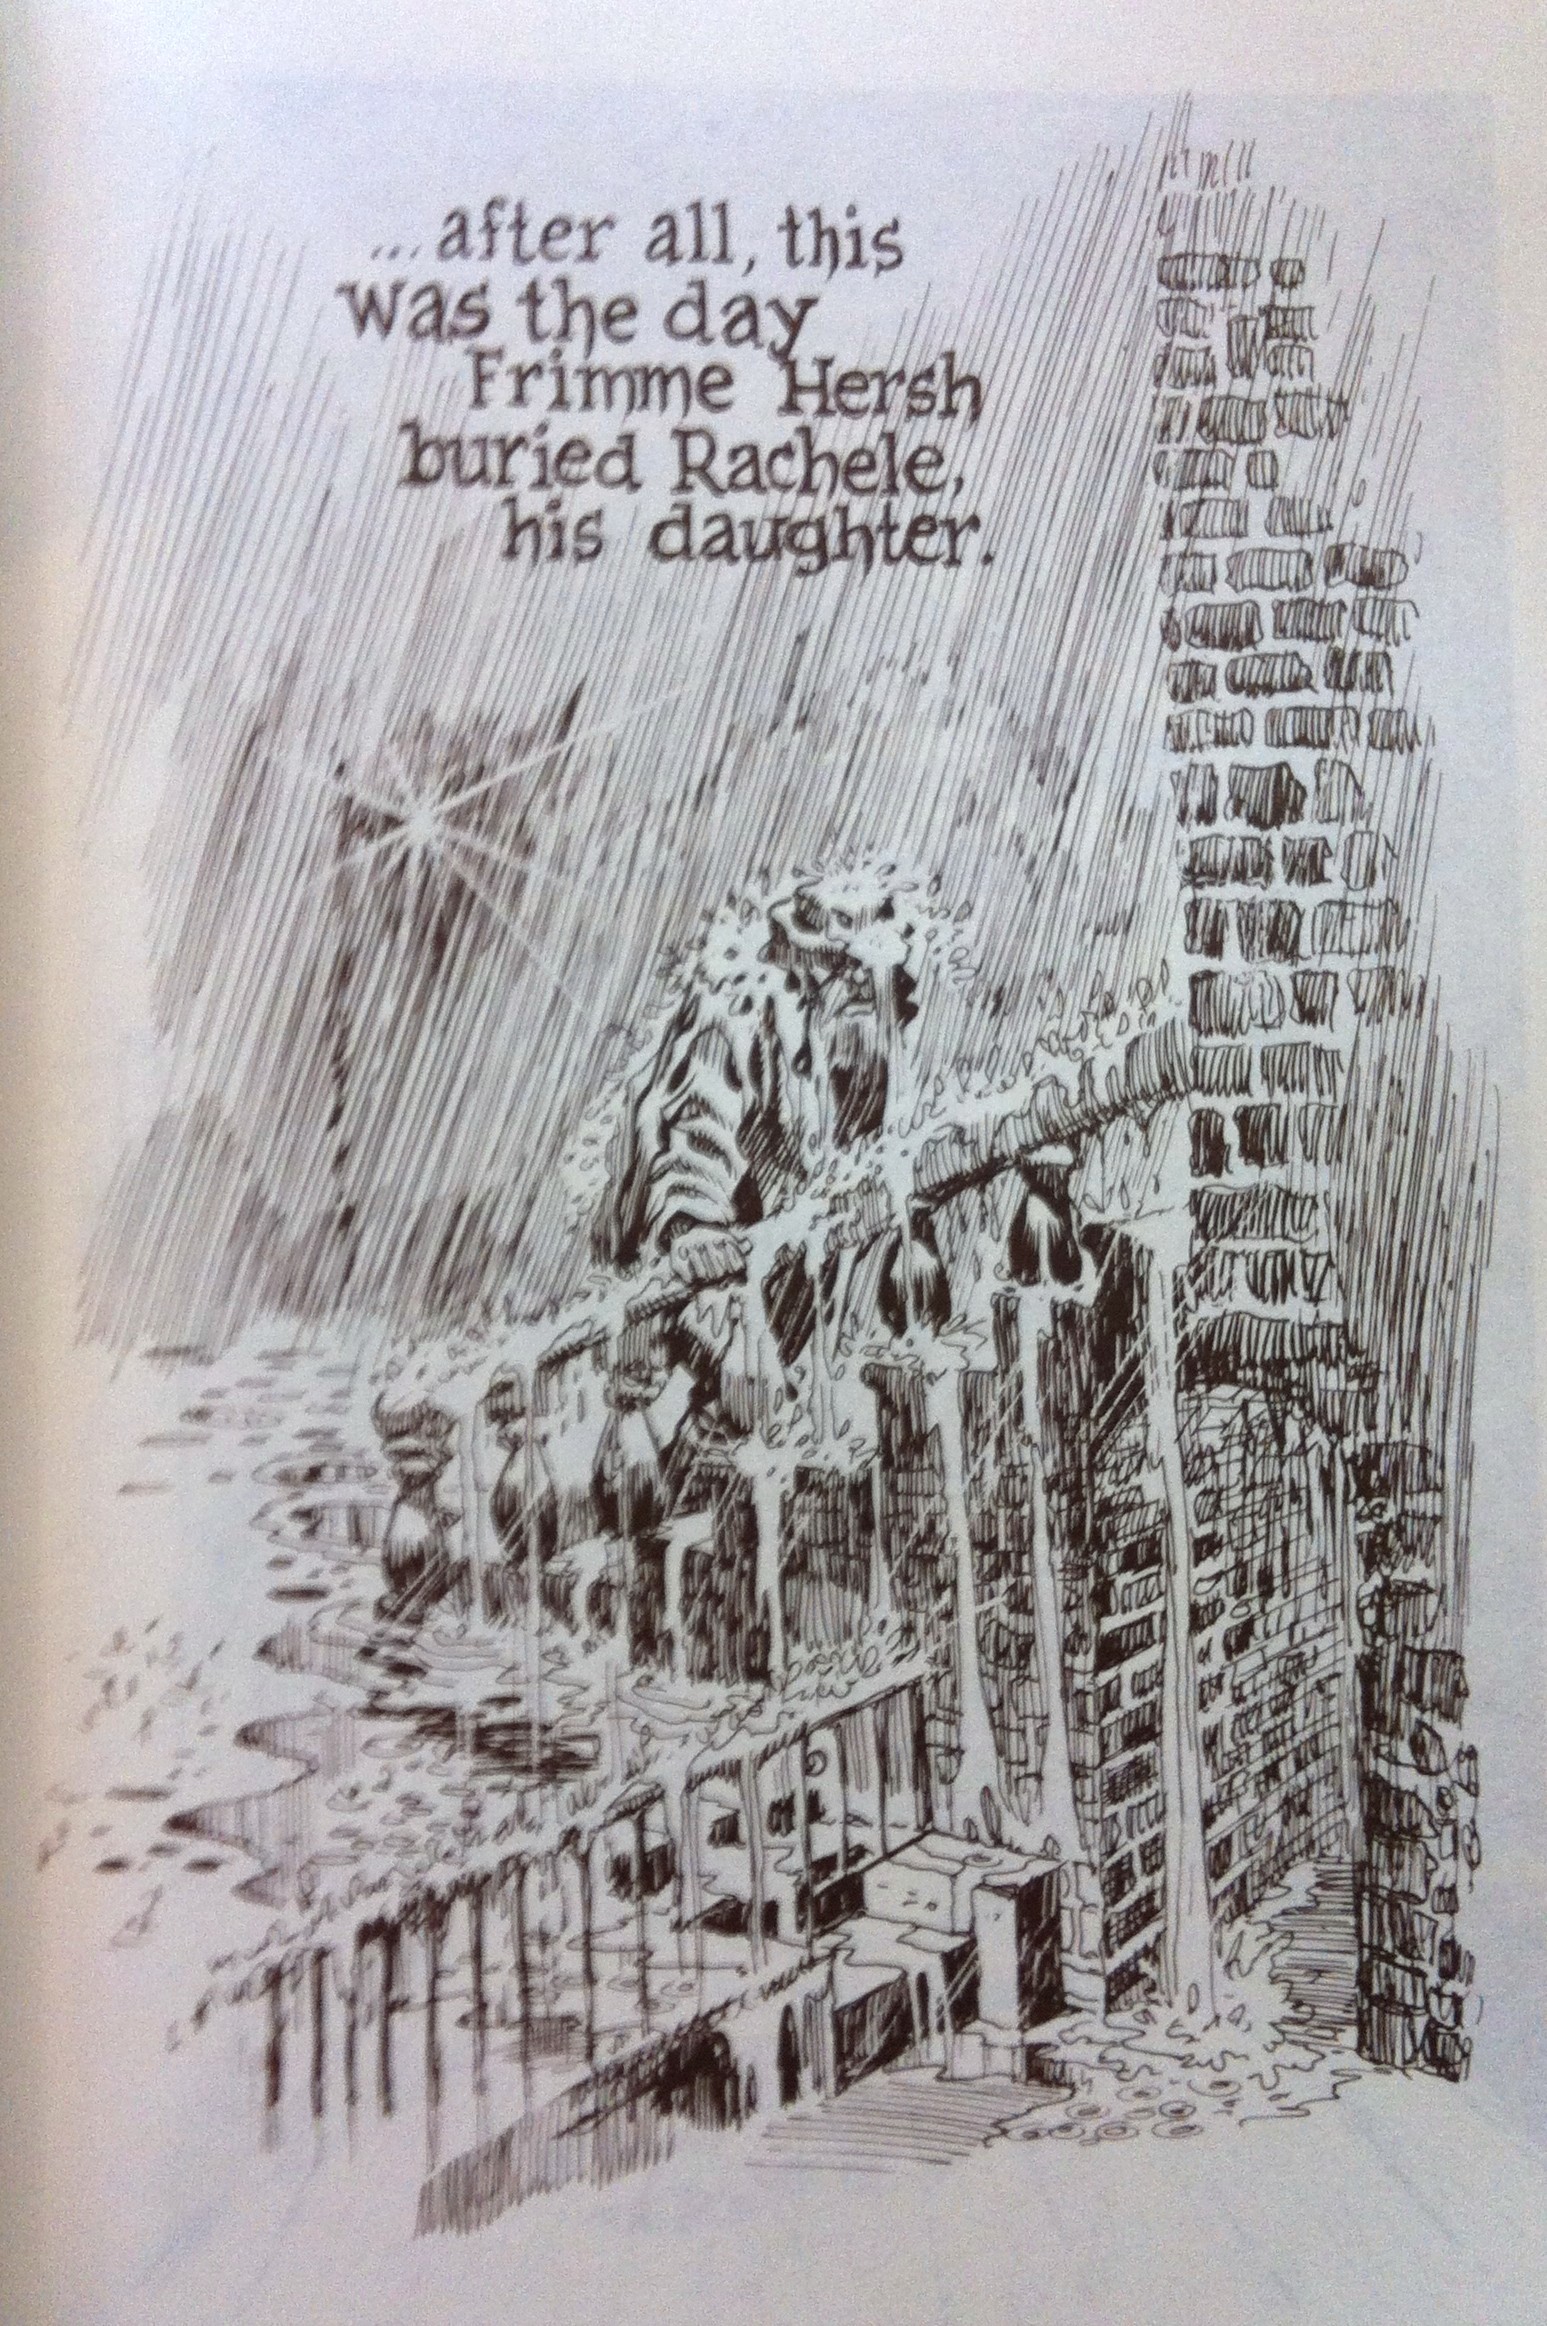 ...after all, this
was the day
Frimme Hersh
buried Rachele,
his daughter.